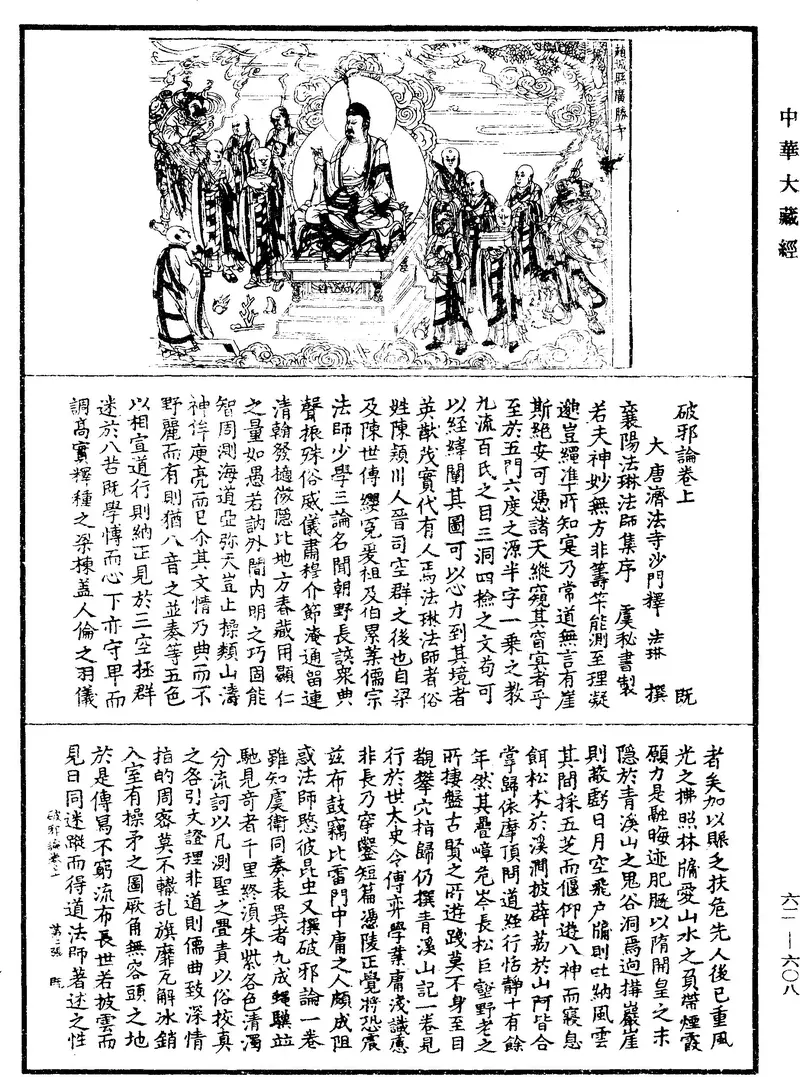 中華大藏經
六二—六〇八
趙城縣廣勝寺
破邪論卷上 既
大唐濟法寺沙門釋法琳撰
襄陽法琳法師集序 虞秘書製
若夫神妙無方非籌筭能測至理凝
邈豈繩準所知寔乃常道無言有崖
斯絕安可憑諸天縱窺其窅寞者乎
至於五門六度之源半字一乗之教
九流百氏之目三洞四檢之文苟可
以經緯闡其圖可以心力到其境者
英猷茂實代有人焉法琳法師者俗
姓陳潁川人晉司空群之後也自梁
及陳世傳纓冕爰祖及伯累業儒宗
法師少學三論名聞朝野長該衆典
聲振殊俗威儀肅穆介節淹通留連
清翰發擿微隱比地方春藏用顯仁
之量如愚若訥外闇内明之巧固能
智周測海道亞弥天豈止操類山濤
神侔庾亮而已介其文情乃典而不
野麗而有則猶八音之並奏等五色
以相宣道行則納正見於三空拯群
迷於八苦既學博而心下亦守卑而
調高實釋種之梁棟盖人倫之羽儀
者矣加以賑乏扶危先人後己重風
光之拂照林牖愛山水之負帶煙霞
願力是融晦迹肥遁以隋開皇之末
隱於青溪山之鬼谷洞焉迥搆巖崖
則蔽虧日月空飛戶牖則吐納風雲
其間採五芝而偃仰遊八神而寢息
餌松术於溪澗披薜荔於山阿皆合
掌歸依摩頂問道經行恬静十有餘
年然其疊嶂危岑長松巨壑野老之
所棲盤古賢之所遊踐莫不身至目
覩攀穴指歸仍撰青溪山記一卷見
行於世太史令傅弈學業庸淺識慮
非長乃穿鑿短篇憑陵正覺將恐震
茲布鼓竊比雷門中庸之人頗成阻
惑法師愍彼昆虫又撰破邪論一卷
雖知虞衛同奏表異者九成蝇驥並
馳見奇者千里終須朱紫各色清濁
分流訶以凡測聖之舋責以俗校真
之咎引文證理非道則儒曲致深情
指的周密莫不轍乱旗靡瓦解冰銷
入室有操矛之圖厥角無容頭之地
於是傳寫不窮流布長世若披雲而
見日同迷蹤而得道法師著述之性
破邪論卷上 第二張 既